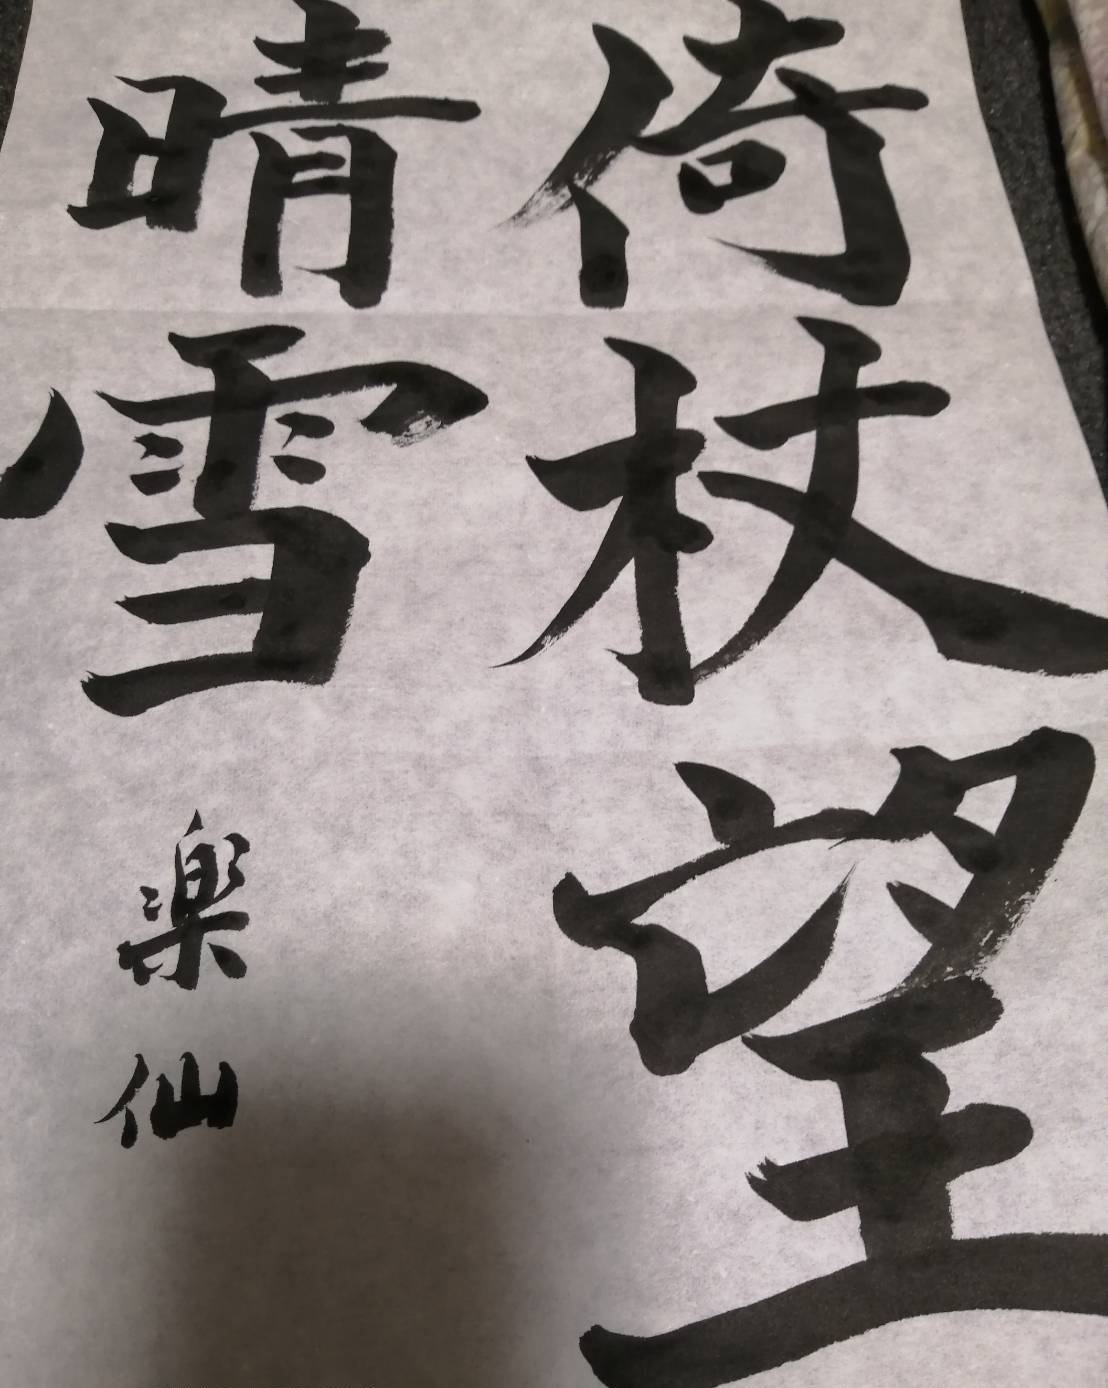 倚杖望
晴雪
楽仙